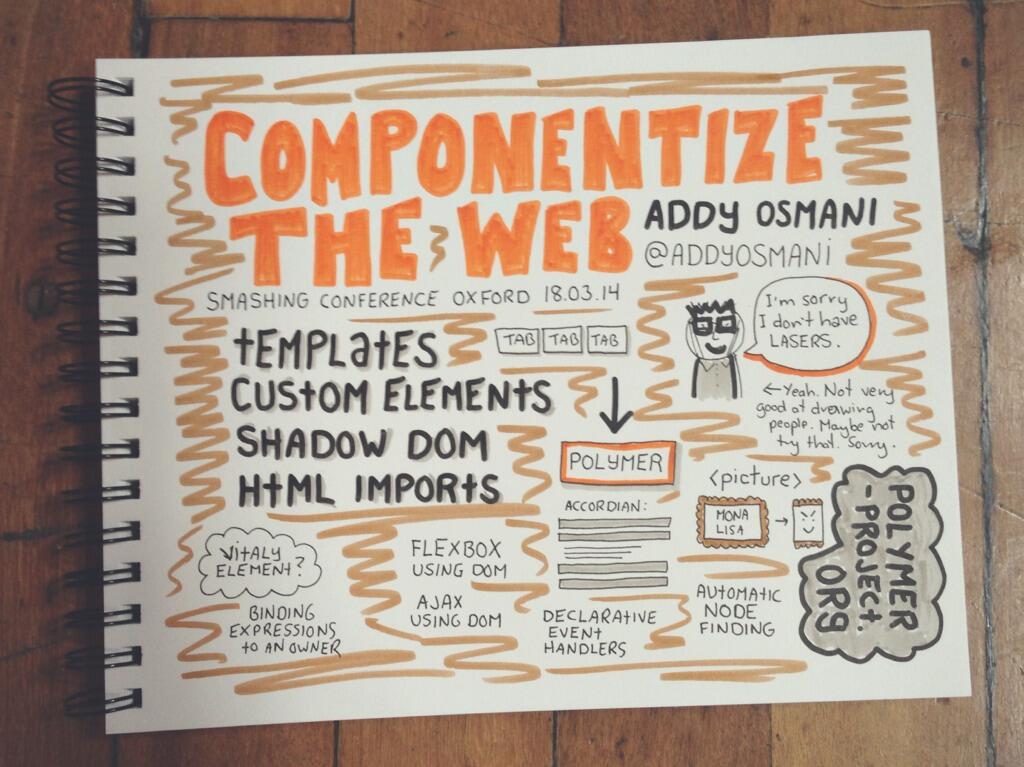 COMPONENTIZE
THE WEB
ADDY OSMANI
@ADDYOSMANI
SMASHING CONFERENCE OXFORD 18.03.14
TEMPLATES
CUSTOM ELEMENTS
SHADOW DOM
HTML IMPORTS
TAB TAB TAB
POLYMER
ACCORDIAN:
I'm sorry
I don't have
LASERS.
←Yeah. Not very
good at drewing
people. Maybe not
try that. Sorry.
<picture>
MONA
LISA
→
POLYMER
-PROJECT.
ORG
VITALY
ELEMENT?
BINDING
EXPRESSIONS
TO AN OWNER
FLEXBOX
USING DOM
AJAX
USING DOM
DECLARATIVE
EVENT
HANDLERS
AUTOMATIC
NODE
FINDING